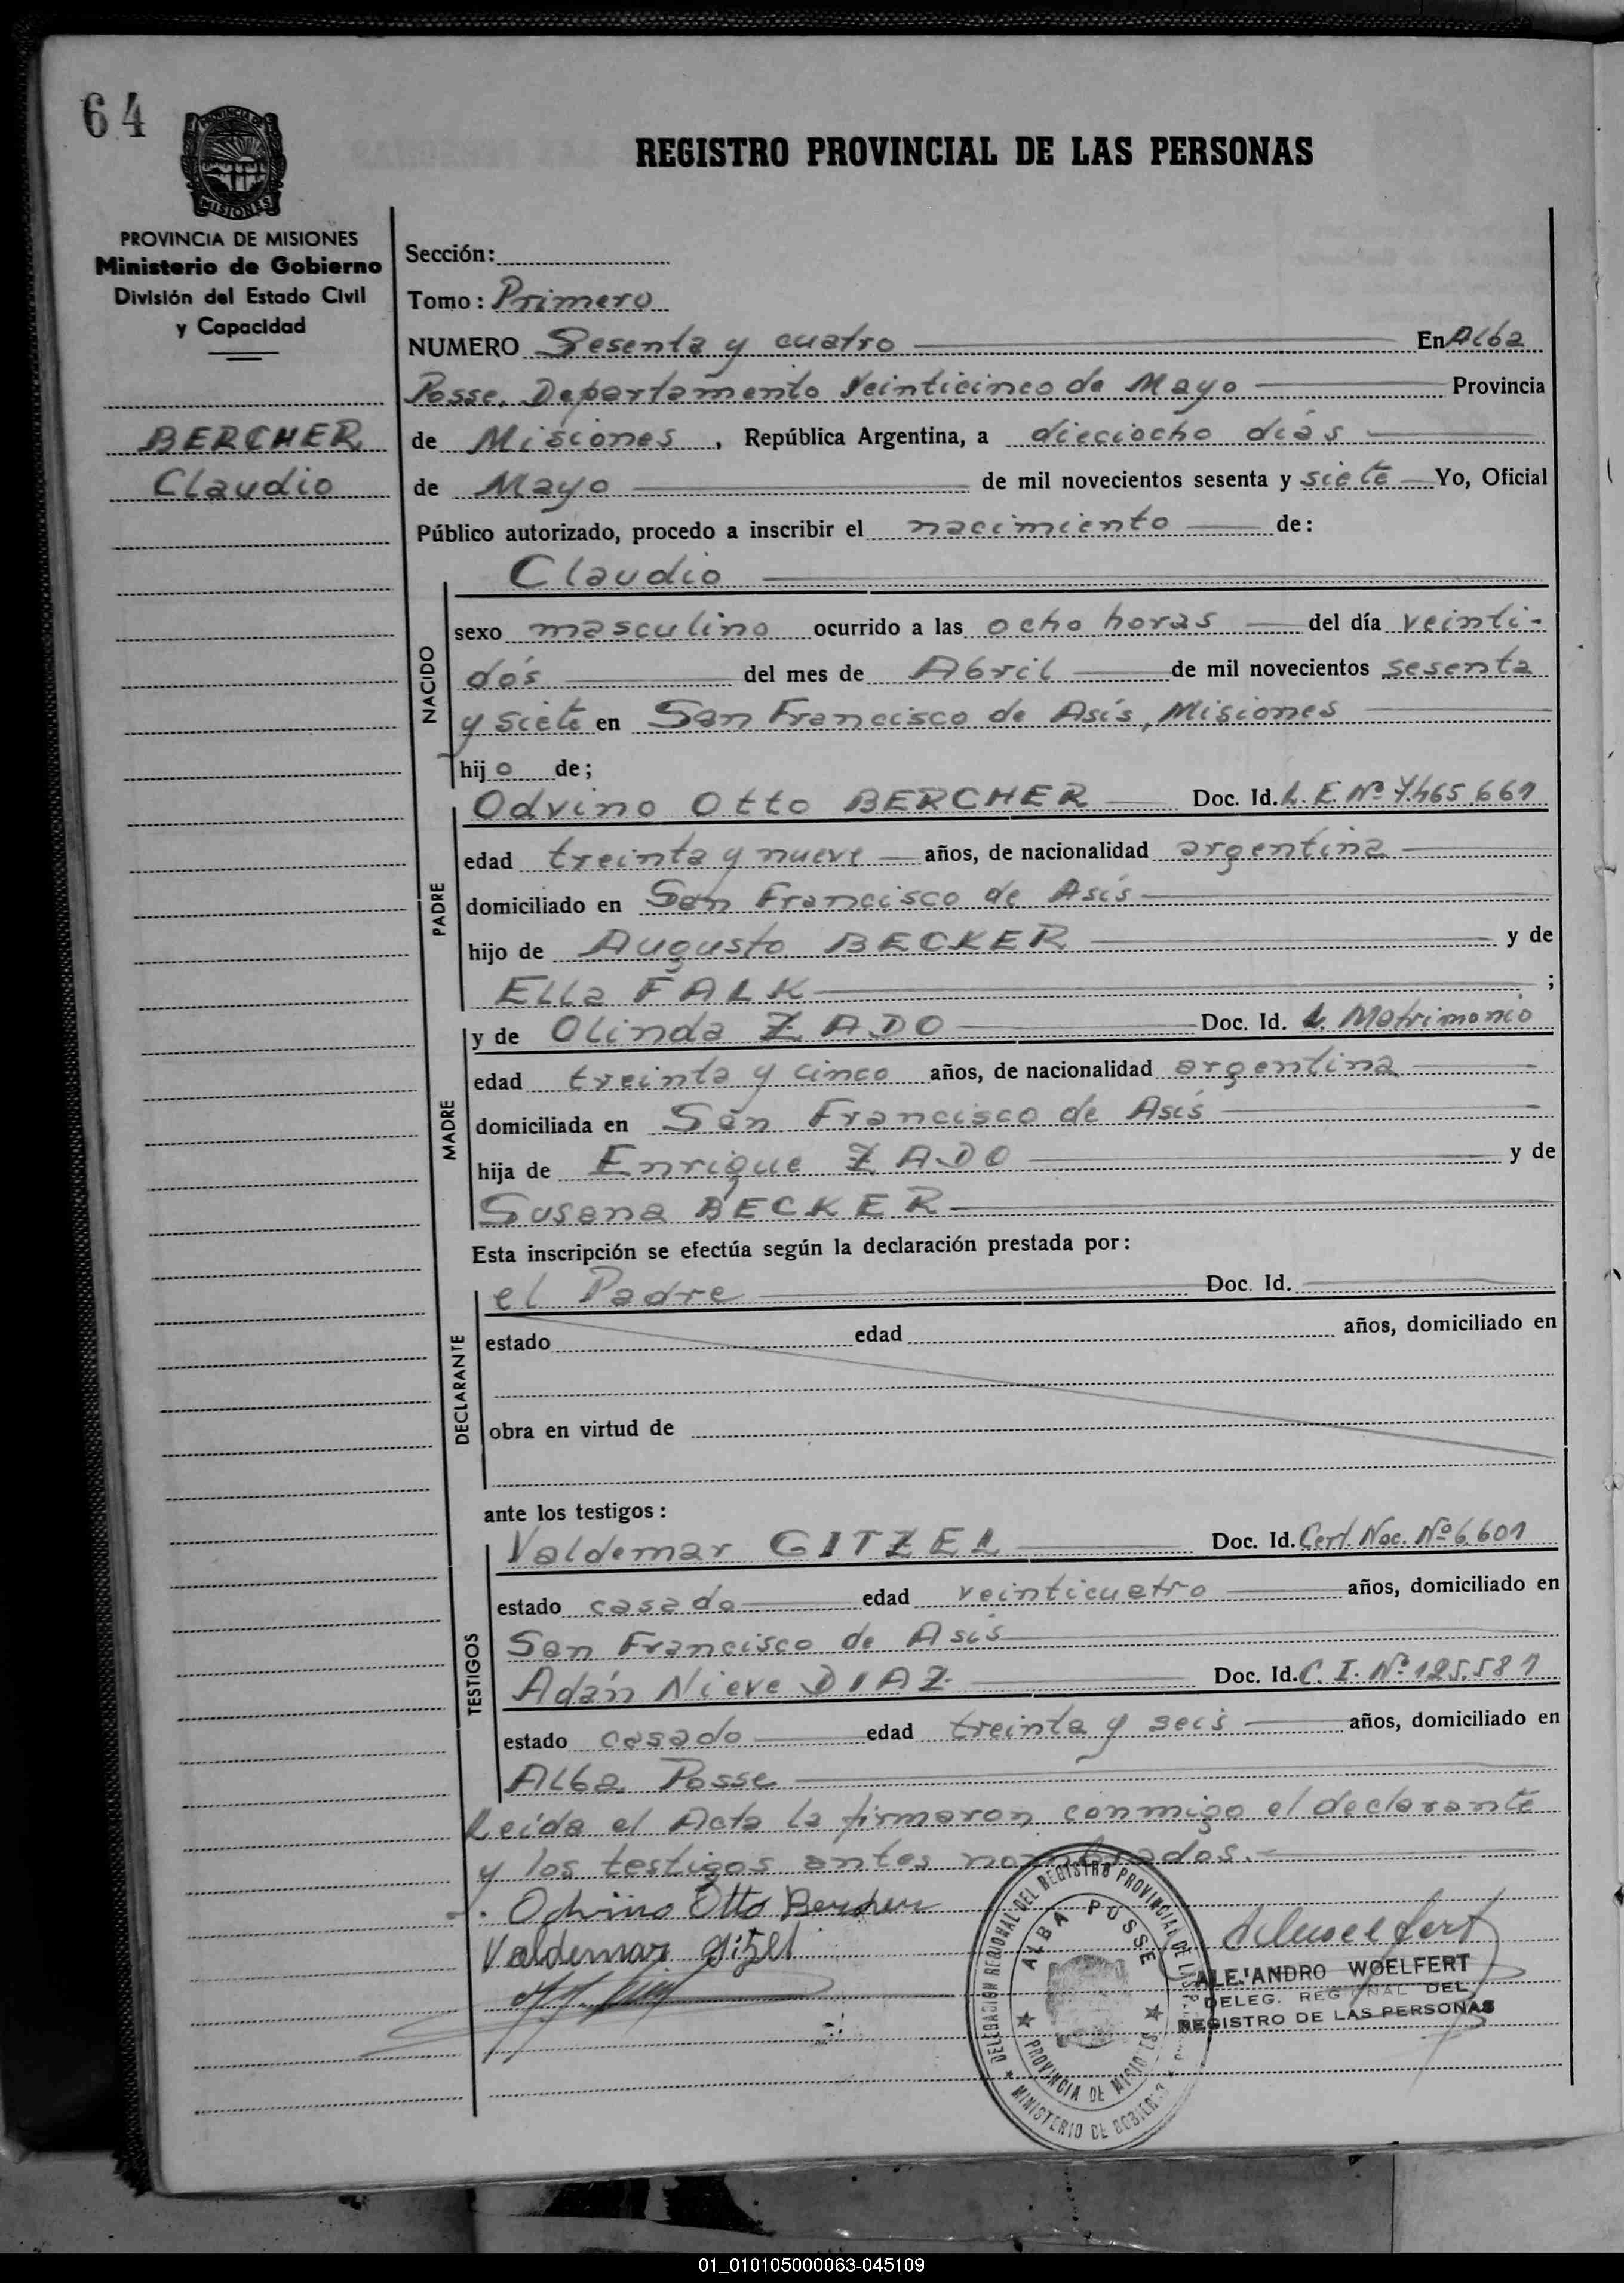 64
PROVINCIA DE
MISIONES
REGISTRO PROVINCIAL DE LAS PERSONAS
PROVINCIA DE MISIONES
Ministerio de Gobierno
División del Estado Civil
y Capacidad
BERCHER
Claudio
Sección:
Tomo: Primero
NUMERO Sesenta y cuatro En Alba
Posse, Departamento Veinticinco de Mayo Provincia
de Misiones, República Argentina, a dieciocho días
de Mayo de mil novecientos sesenta y siete Yo, Oficial
Público autorizado, procedo a inscribir el nacimiento de:
Claudio
NACIDO
sexo masculino ocurrido a las ocho horas del día veinti-
dós del mes de Abril de mil novecientos sesenta
y siete en San Francisco de Asís, Misiones
hijo de;
PADRE
Odvino Otto BERCHER Doc. Id. L. E. Nº 7.465.661
edad treinta y nueve años, de nacionalidad argentina
domiciliado en San Francisco de Asís
hijo de Augusto BECKER y de
Ella FALK ;
MADRE
y de Olinda ZADO Doc. Id. L. Matrimonio
edad treinta y cinco años, de nacionalidad argentina
domiciliada en San Francisco de Asís
hija de Enrique ZADO y de
Susana BECKER
Esta inscripción se efectúa según la declaración prestada por:
DECLARANTE
el Padre Doc. Id.
estado edad años, domiciliado en
obra en virtud de
ante los testigos:
TESTIGOS
Valdemar GITZEL Doc. Id. Cert. Nac. Nº 6.601
estado casado edad veinticuatro años, domiciliado en
San Francisco de Asís
Adán Nieve DIAZ Doc. Id. C. I. Nº 125.581
estado casado edad treinta y seis años, domiciliado en
Alba Posse
Leída el Acta la firmaron conmigo el declarante
y los testigos antes nombrados.
Odvino Otto Bercher
Valdemar Gitzel
DELEGACION REGIONAL DEL REGISTRO PROVINCIAL DE LAS
ALBA POSSE
PROVINCIA DE MISIONES
MINISTERIO DE GOBIERNO
ALEJANDRO WOELFERT
DELEG. REGIONAL DEL
REGISTRO DE LAS PERSONAS
01_010105000063-045109